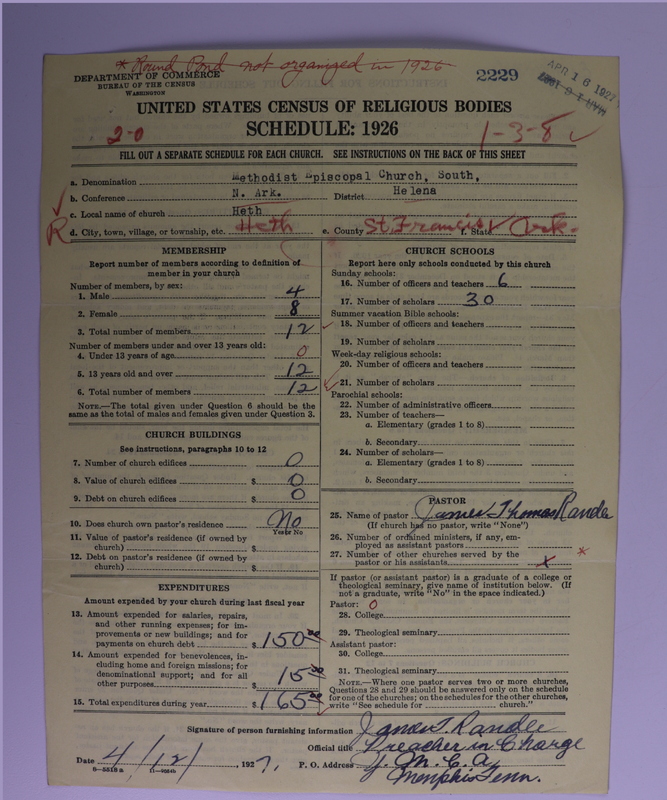 * Round Pond not organized in 1926
DEPARTMENT OF COMMERCE
BUREAU OF THE CENSUS
WASHINGTON
2229
APR 16 1927
UNITED STATES CENSUS OF RELIGIOUS BODIES
SCHEDULE: 1926
2-0
1-3-8 ✓
FILL OUT A SEPARATE SCHEDULE FOR EACH CHURCH. SEE INSTRUCTIONS ON THE BACK OF THIS SHEET
a. Denomination Methodist Episcopal Church, South,
b. Conference N. Ark. District Helena
c. Local name of church Heth
R d. City, town, village, or township, etc. Heth e. County St. Francis f. State Ark.
MEMBERSHIP
Report number of members according to definition of
member in your church
Number of members, by sex:
1. Male 4
2. Female 8
3. Total number of members 12
Number of members under and over 13 years old:
4. Under 13 years of age 0
5. 13 years old and over 12
6. Total number of members 12
NOTE.—The total given under Question 6 should be the
same as the total of males and females given under Question 3.
CHURCH BUILDINGS
See instructions, paragraphs 10 to 12
7. Number of church edifices 0
8. Value of church edifices $ 0
9. Debt on church edifices $ 0
10. Does church own pastor's residence No
Yes or No
11. Value of pastor's residence (if owned by
church) $
12. Debt on pastor's residence (if owned by
church) $
EXPENDITURES
Amount expended by your church during last fiscal year
13. Amount expended for salaries, repairs,
and other running expenses; for im-
provements or new buildings; and for
payments on church debt $ 150.00
14. Amount expended for benevolences, in-
cluding home and foreign missions; for
denominational support; and for all
other purposes 15.00
15. Total expenditures during year $ 165.00
CHURCH SCHOOLS
Report here only schools conducted by this church
Sunday schools:
16. Number of officers and teachers 6
17. Number of scholars 30
Summer vacation Bible schools:
18. Number of officers and teachers
19. Number of scholars
Week-day religious schools:
20. Number of officers and teachers
21. Number of scholars
Parochial schools:
22. Number of administrative officers
23. Number of teachers—
a. Elementary (grades 1 to 8)
b. Secondary
24. Number of scholars—
a. Elementary (grades 1 to 8)
b. Secondary
PASTOR
25. Name of pastor James Thomas Randle
(If church has no pastor, write "None")
26. Number of ordained ministers, if any, em-
ployed as assistant pastors
27. Number of other churches served by the
pastor or his assistants *
If pastor (or assistant pastor) is a graduate of a college or
theological seminary, give name of institution below. (If
not a graduate, write "No" in the space indicated.)
Pastor: 0
28. College
29. Theological seminary
Assistant pastor:
30. College
31. Theological seminary
NOTE.—Where one pastor serves two or more churches,
Questions 28 and 29 should be answered only on the schedule
for one of the churches; on the schedules for the other churches,
write "See schedule for church."
Signature of person furnishing information James T. Randle
Official title Preacher in Charge
Date 4/12/, 1927. P. O. Address Y. M. C. A.
Memphis Tenn.